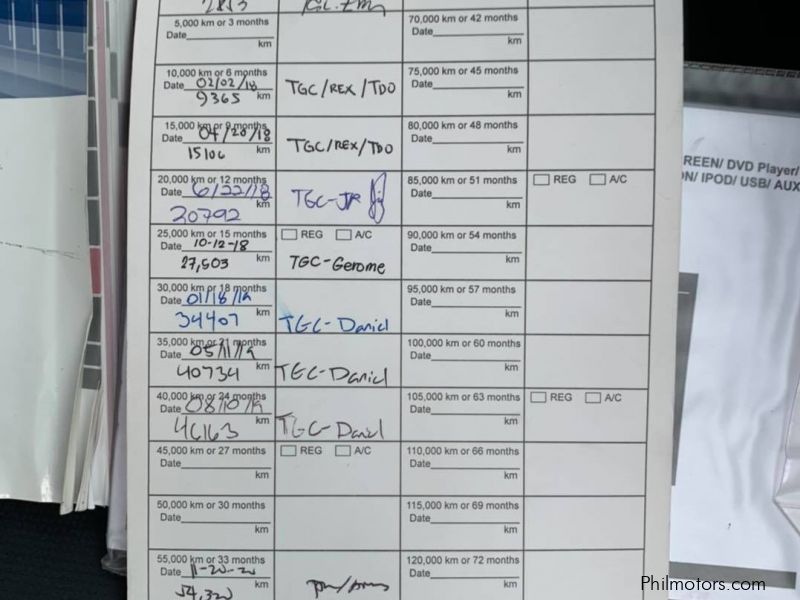 2853
5,000 km or 3 months
Date
km
10,000 km or 6 months
Date 02/02/18
9365 km
TGC/REX/TDO
15,000 km or 9 months
Date 04/20/18
15106 km
TGC/REX/TDO
20,000 km or 12 months
Date 6/22/18
20792 km
TGC-JR
25,000 km or 15 months
Date 10-12-18
27,503 km
REG A/C
TGC-Gerome
30,000 km or 18 months
Date 01/18/19
34407 km
TGC-Daniel
35,000 km or 21 months
Date 05/11/19
40734 km
TGC-Daniel
40,000 km or 24 months
Date 08/10/19
46163 km
TGC-Daniel
45,000 km or 27 months
Date
km
REG A/C
50,000 km or 30 months
Date
km
55,000 km or 33 months
Date 11-20-20
54,320 km
70,000 km or 42 months
Date
km
75,000 km or 45 months
Date
km
80,000 km or 48 months
Date
km
85,000 km or 51 months
Date
km
REG A/C
90,000 km or 54 months
Date
km
95,000 km or 57 months
Date
km
100,000 km or 60 months
Date
km
105,000 km or 63 months
Date
km
REG A/C
110,000 km or 66 months
Date
km
115,000 km or 69 months
Date
km
120,000 km or 72 months
Date
km
REEN/ DVD Player/
ON/ IPOD/ USB/ AUX
Philmotors.com